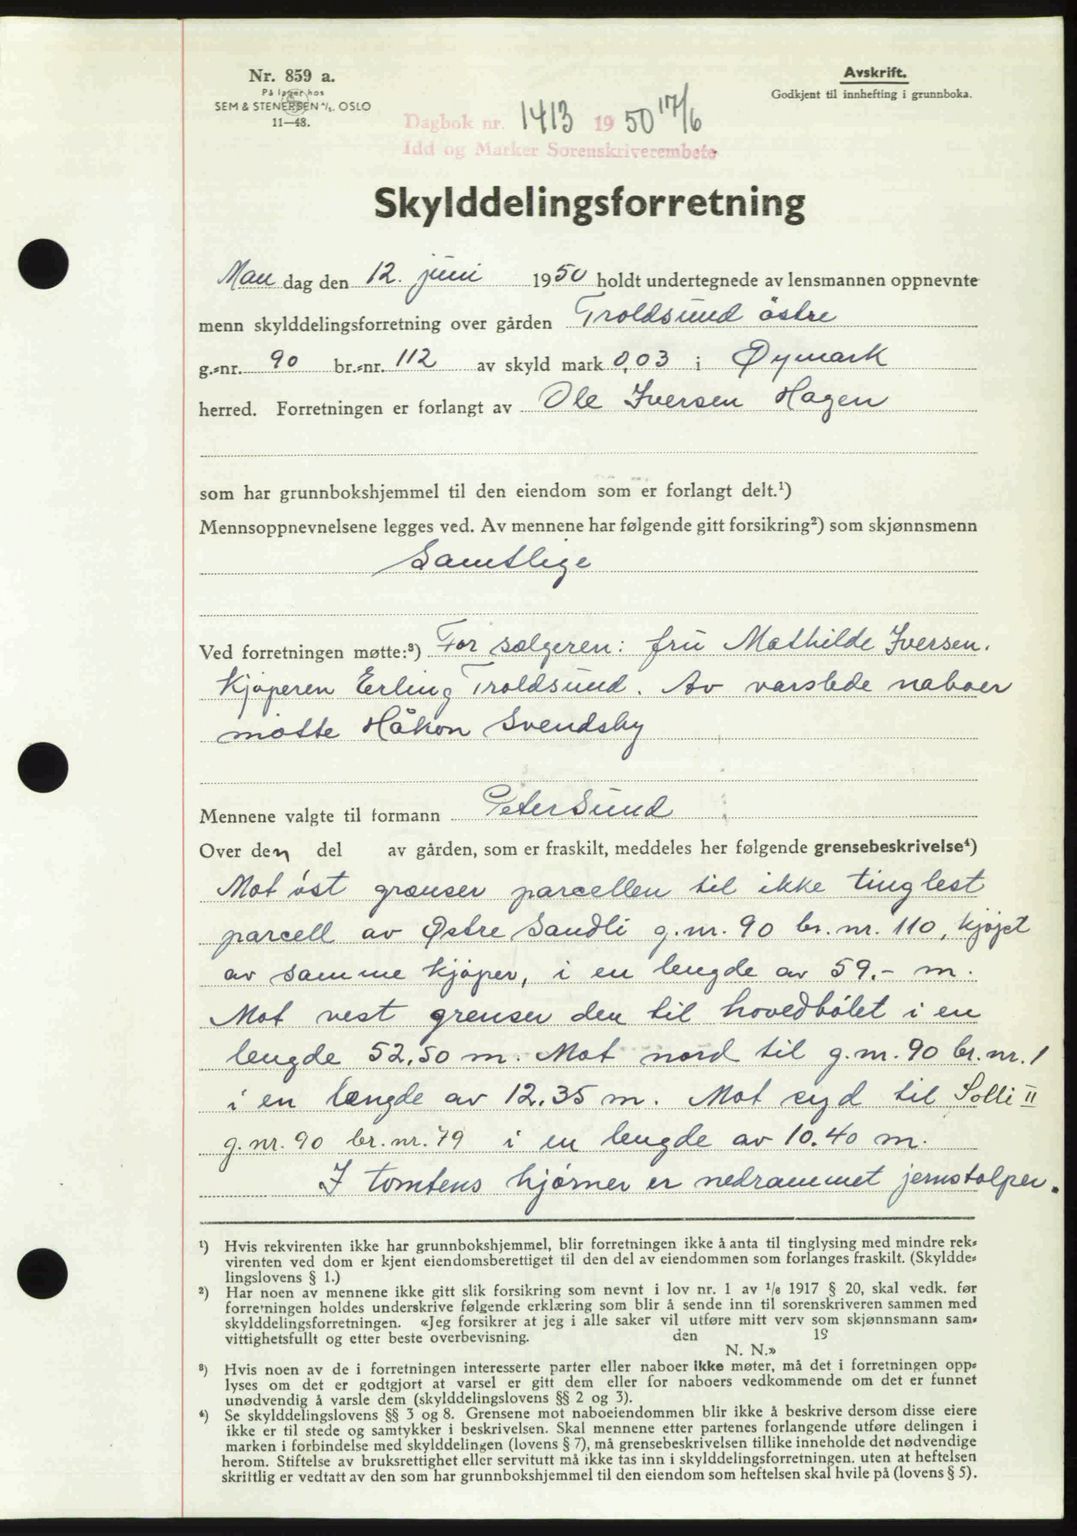 Nr. 859 a.
På lager hos
SEM & STENERSEN A/S. OSLO
11—48.
Avskrift.
Godkjent til innhefting i grunnboka.
Dagbok nr. 1413 1950 17/6
Idd og Marker Sorenskriverembete
Skylddelingsforretning
Man dag den 12. juni 1950 holdt undertegnede av lensmannen oppnevnte
menn skylddelingsforretning over gården Troldsund östre
g.-nr. 90 br.-nr. 112 av skyld mark 0,03 i Øymark
herred. Forretningen er forlangt av Ole Iversen Hagen
som har grunnbokshjemmel til den eiendom som er forlangt delt.¹)
Mennsoppnevnelsene legges ved. Av mennene har følgende gitt forsikring²) som skjønnsmenn
Samtlige
Ved forretningen møtte:³) For sælgeren: fru Mathilde Iversen.
Kjøperen Erling Troldsund. Av varslede naboer
møtte Håkon Svendsby
Mennene valgte til formann Peter Sund
Over den del av gården, som er fraskilt, meddeles her følgende grensebeskrivelse⁴)
Mot øst grænser parcellen til ikke tinglest
parcell av Østre Sandli g.nr. 90 br.nr. 110, kjøpt
av samme kjøper, i en lengde av 59.- m.
Mot vest grenser den til hovedbølet i en
lengde 52,50 m. Mot nord til g.nr. 90 br.nr. 1
i en længde av 12.35 m. Mot syd til Solli II
g.nr. 90 br.nr. 79 i en lengde av 10.40 m.
I tomtens hjørner er nedrammet jernstolper.
¹) Hvis rekvirenten ikke har grunnbokshjemmel, blir forretningen ikke å anta til tinglysing med mindre rek-
virenten ved dom er kjent eiendomsberettiget til den del av eiendommen som forlanges fraskilt. (Skyldde-
lingslovens § 1.)
²) Har noen av mennene ikke gitt slik forsikring som nevnt i lov nr. 1 av 1/6 1917 § 20, skal vedk. før
forretningen holdes underskrive følgende erklæring som blir å sende inn til sorenskriveren sammen med
skylddelingsforretningen. «Jeg forsikrer at jeg i alle saker vil utføre mitt verv som skjønnsmann sam-
vittighetsfullt og etter beste overbevisning. den 19
N. N.»
³) Hvis noen av de i forretningen interesserte parter eller naboer ikke møter, må det i forretningen opp-
lyses om det er godtgjort at varsel er gitt dem eller for naboers vedkommende om det er funnet
unødvendig å varsle dem (skylddelingslovens §§ 2 og 3).
⁴) Se skylddelingslovens §§ 3 og 8. Grensene mot naboeiendommen blir ikke å beskrive dersom disse eiere
ikke er til stede og samtykker i beskrivelsen. Skal mennene etter partenes forlangende utføre delingen i
marken i forbindelse med skylddelingen (lovens § 7), må grensebeskrivelsen tillike inneholde det nødvendige
herom. Stiftelse av bruksrettighet eller servitutt må ikke tas inn i skylddelingsforretningen. uten at heftelsen
skriftlig er vedtatt av den som har grunnbokshjemmel til den eiendom som heftelsen skal hvile på (lovens § 5).